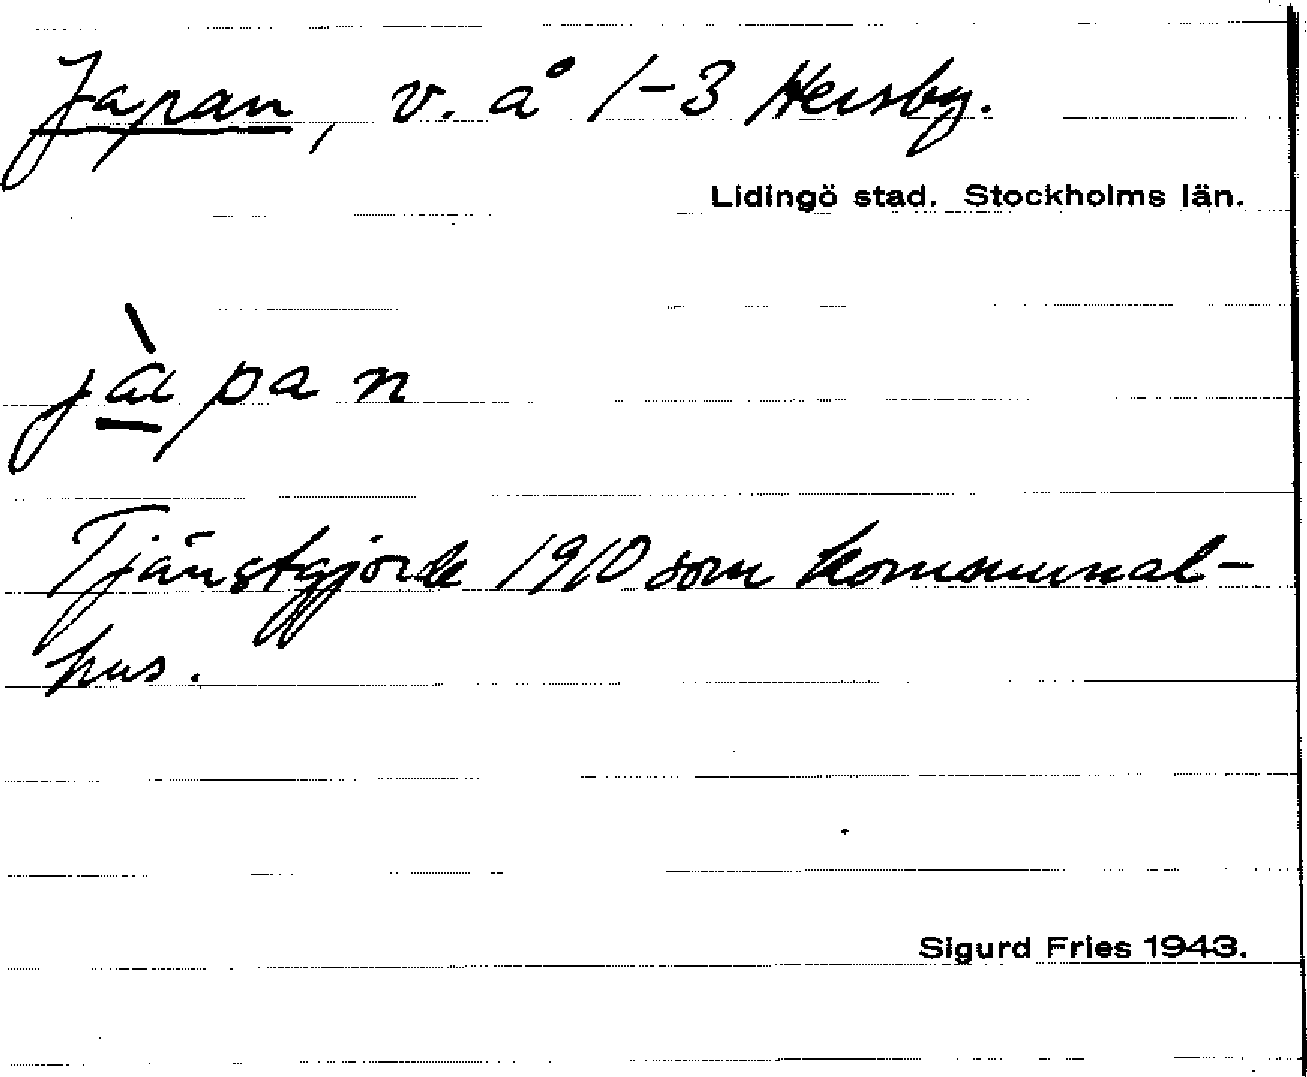 Japan, v. å 1-3 Hersby.
Lidingö stad. Stockholms län.
jàpan
Tjänstgjorde 1910 som kommunal-
hus.
Sigurd Fries 1943.